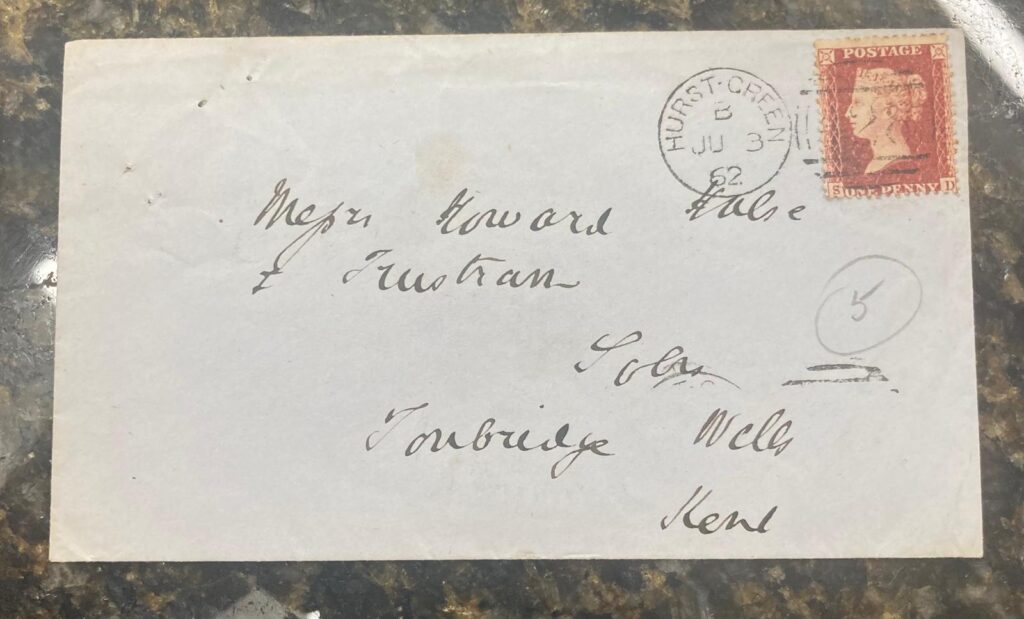 POSTAGE
HURST-GREEN
B
JU 3
62
S ONE PENNY D
Messrs Howard Halse
& Trustram
5
Solrs
Tonbridge Wells
Kent